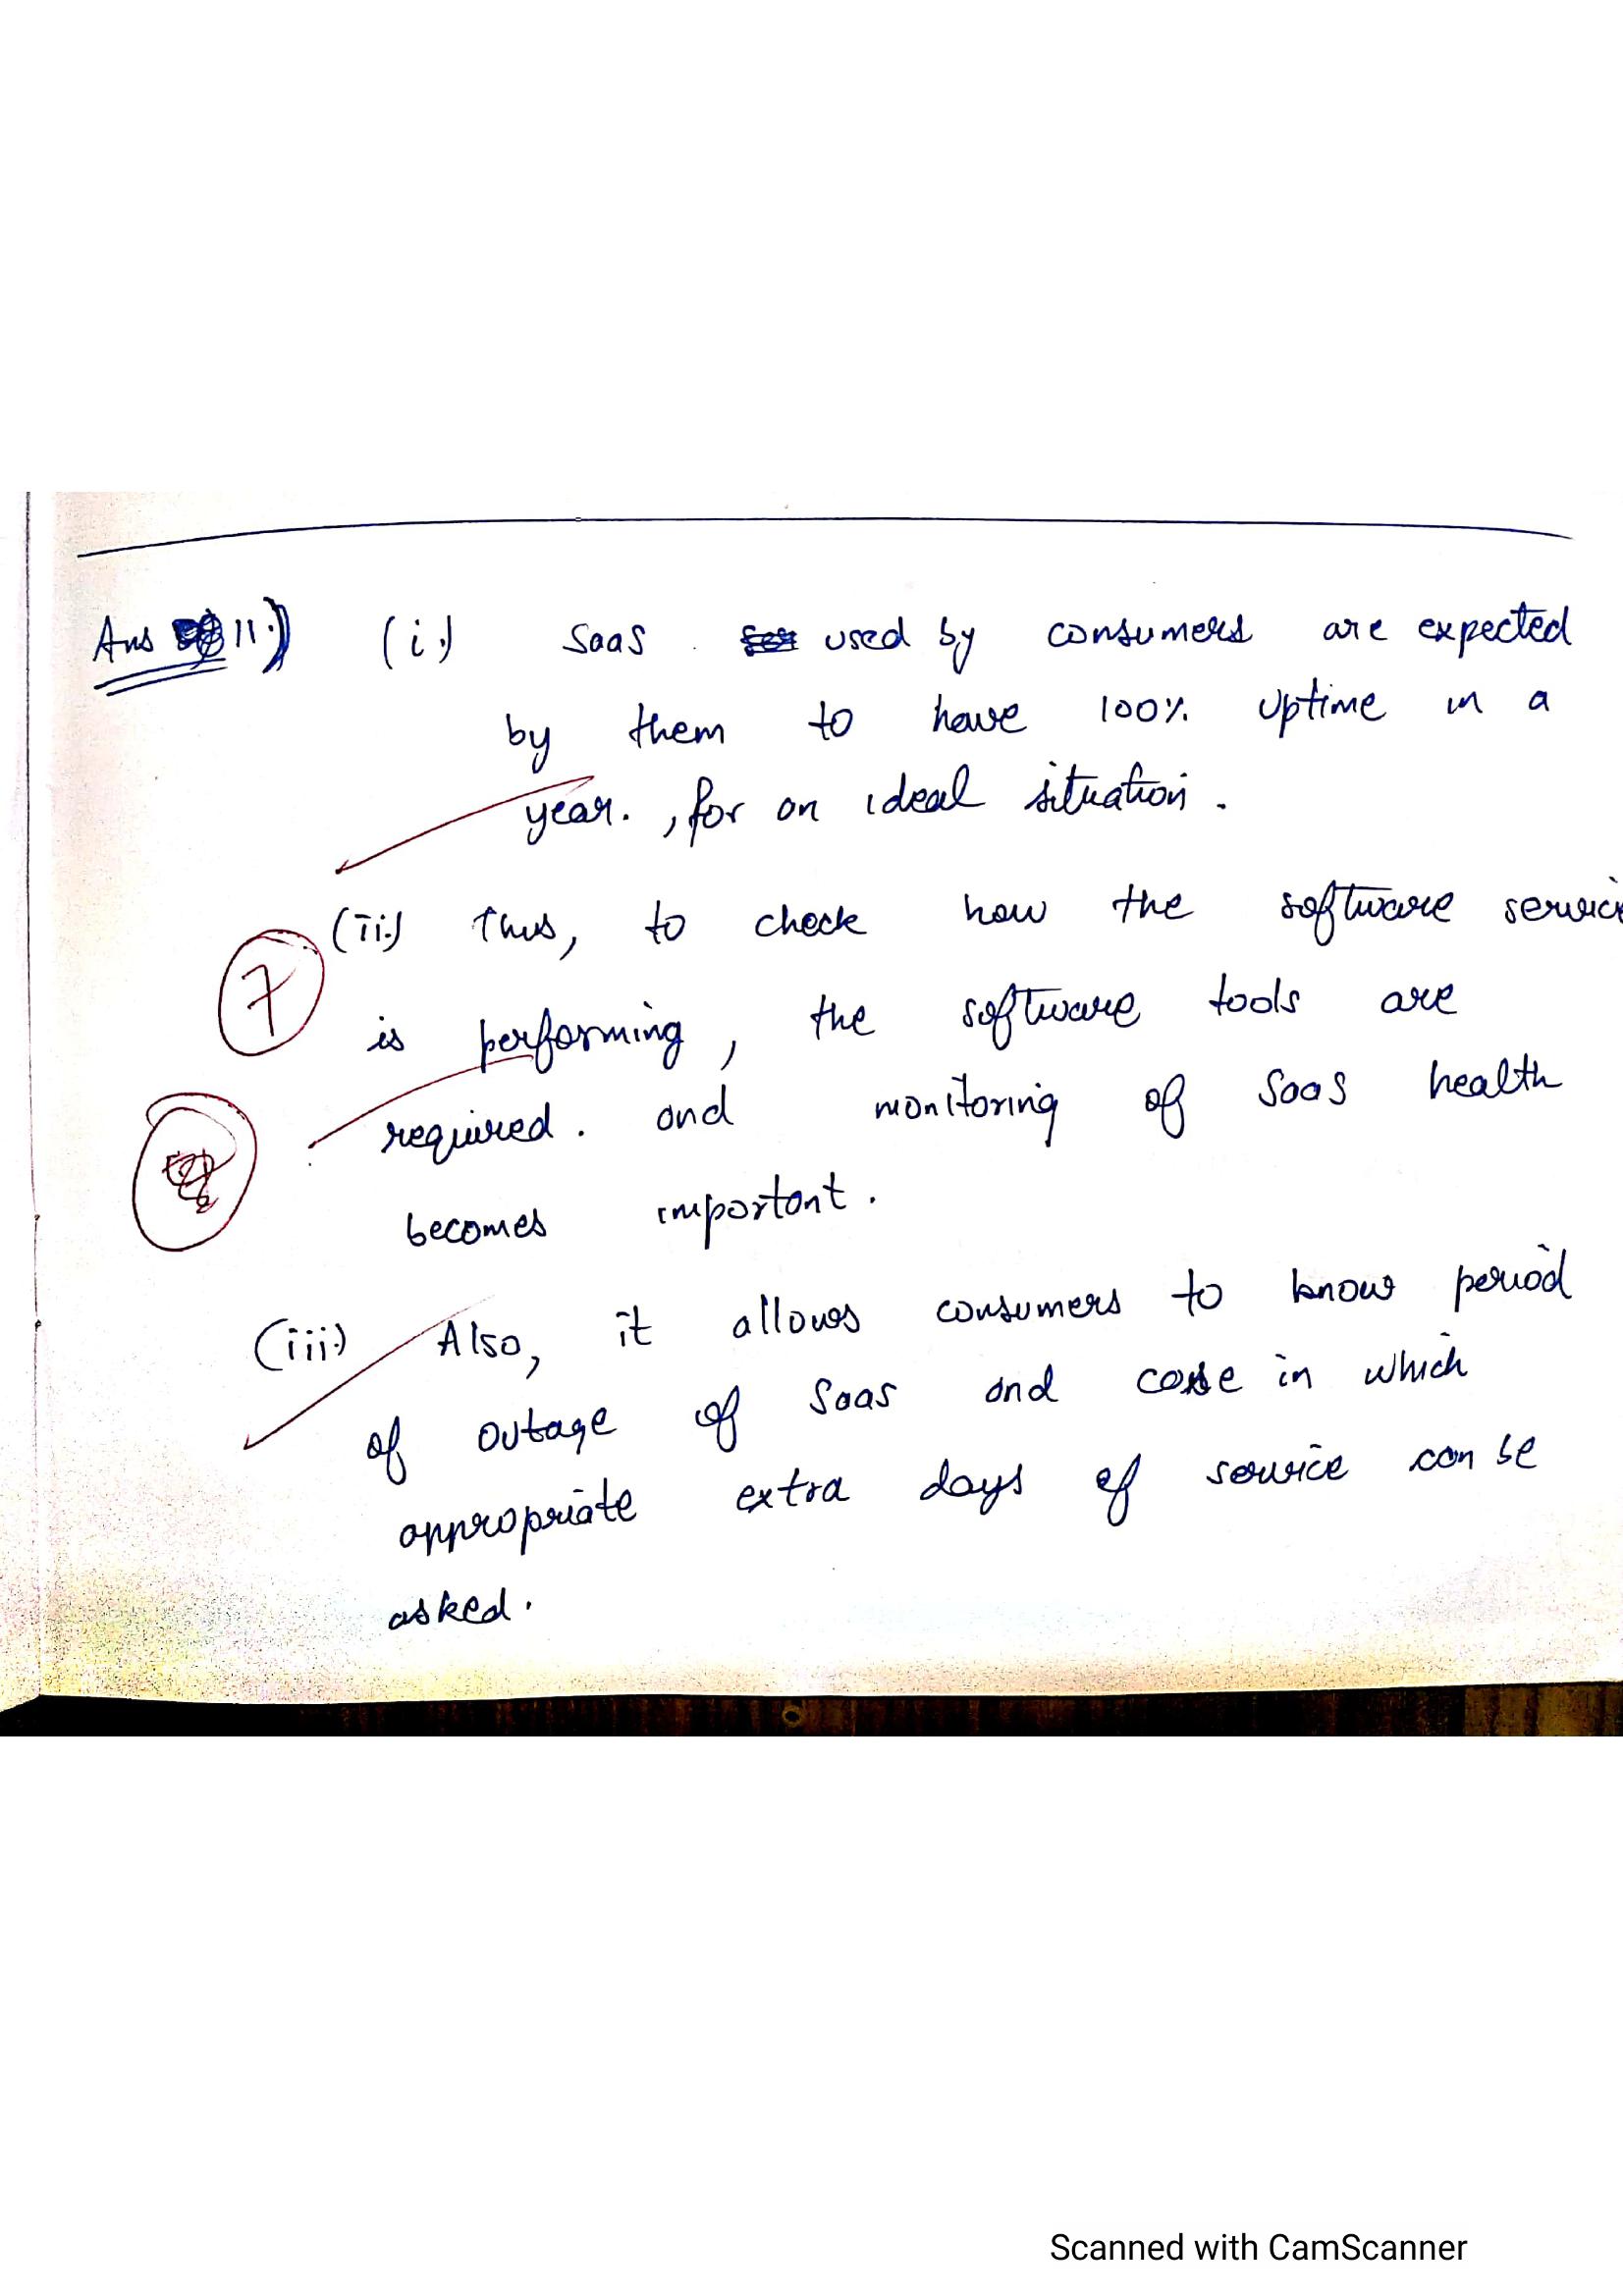 Ans 11.) (i.) SaaS used by consumers are expected
by them to have 100% uptime in a
year. , for an ideal situation.
(ii.) Thus, to check how the software servic
7
is performing, the software tools are
required. and monitoring of SaaS health
becomes important.
(iii.) Also, it allows consumers to know period
of outage of SaaS and case in which
appropriate extra days of service can be
asked.
Scanned with CamScanner